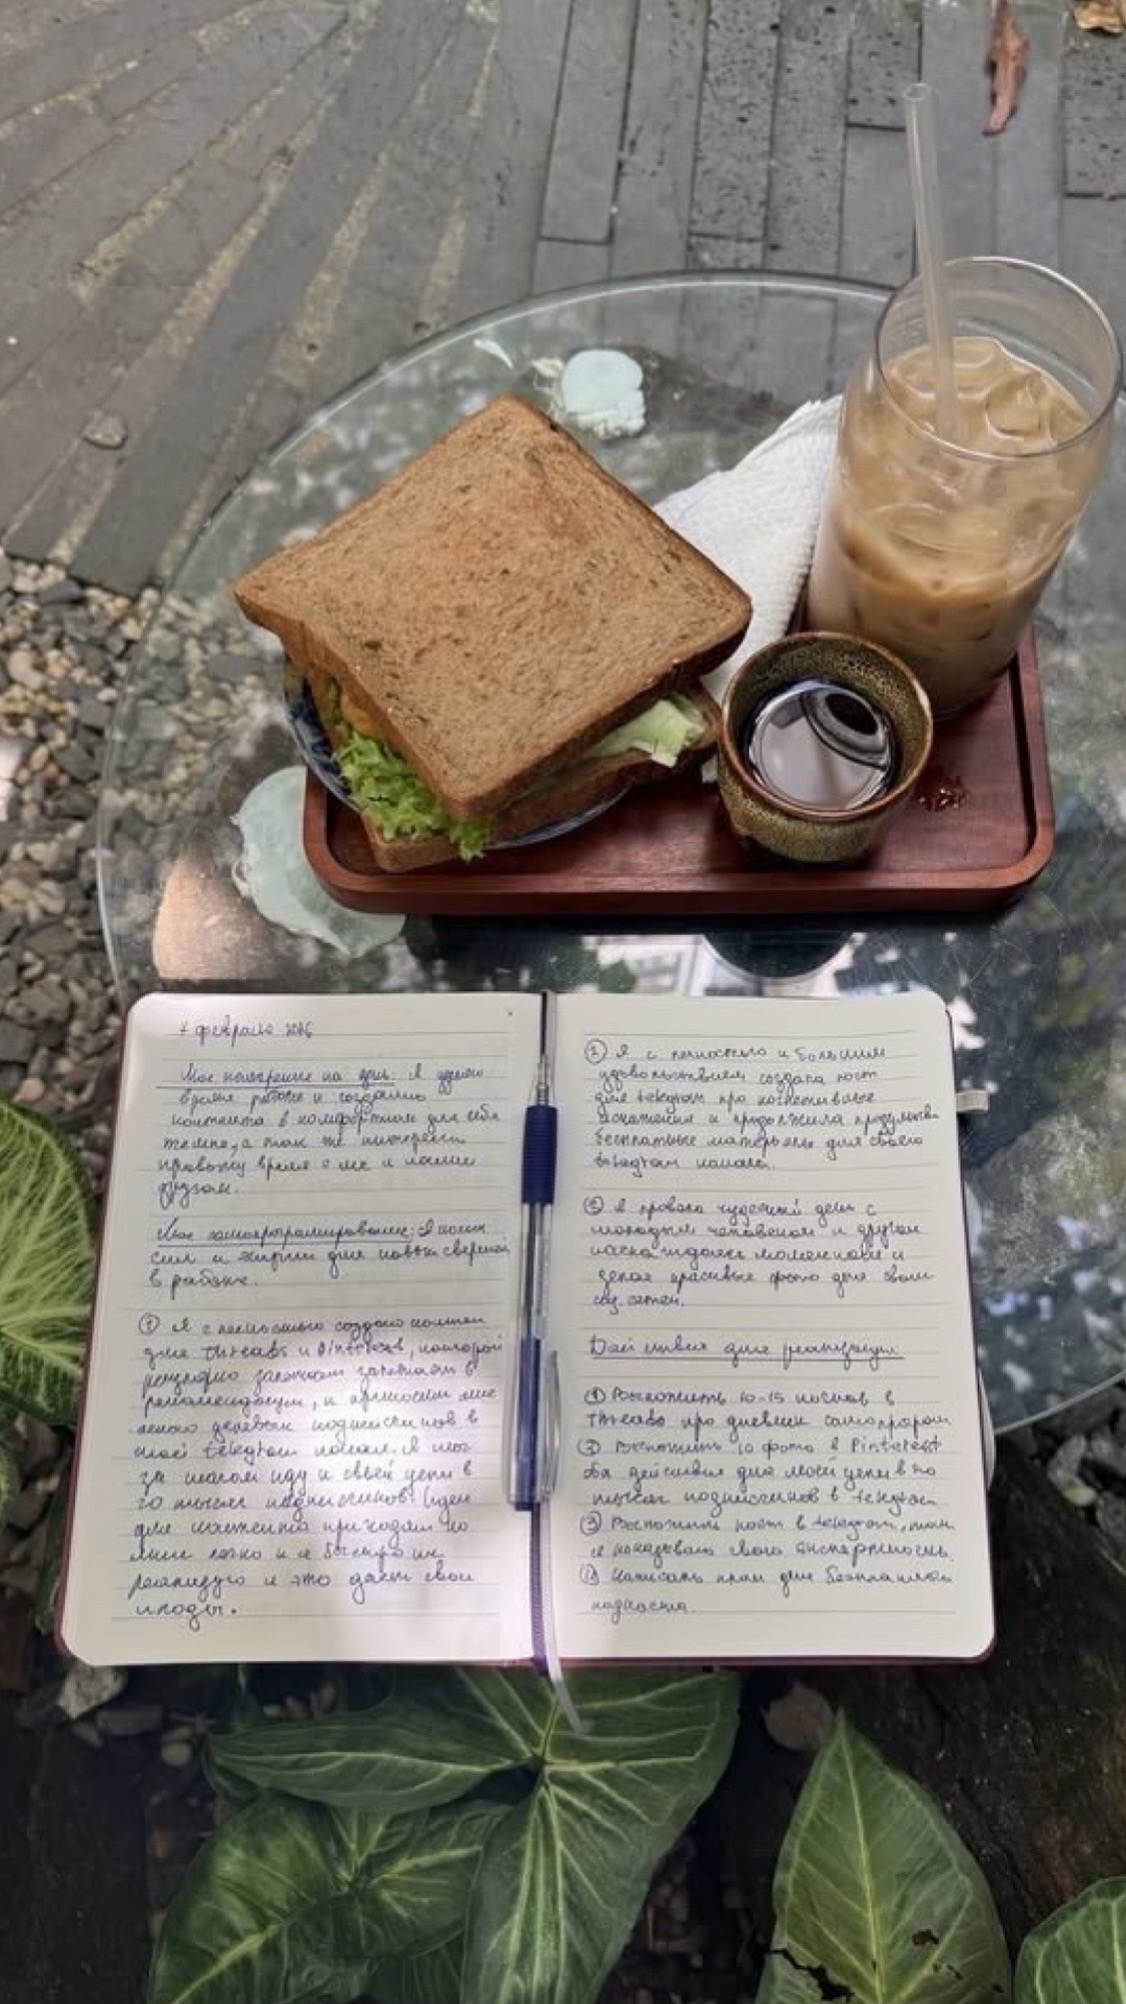 7 февраля 2026
Мое намерение на день: Я уделяю
время работе и созданию
контента в комфортном для себя
темпе, а так же интересно
провожу время с мч и нашим
другом.
Мое запрограммирование: Я полна
сил и энергии для новых свершений
в работе.
① Я с легкостью создаю контент
для threads и Pinterest, который
регулярно залетает в
рекомендации, и приносит мне
много целевых подписчиков в
мой telegram канал. Я шаг
за шагом иду к своей цели в
10 тысяч подписчиков. Идеи
для контента приходят ко
мне легко и я быстро их
реализую и это дает свои
плоды.
② Я с легкостью и большим
удовольствием создала пост
для telegram про когнитивные
искажения и продолжила продумывать
бесплатные материалы для своего
telegram канала.
③ Я провела чудесный день с
молодым человеком и другом
наслаждаясь моментами и
делая красивые фото для своих
соц. сетей.
Действия для реализации:
① Выложить 10-15 постов в
threads про дневник самопрограм
② Выложить 10 фото в Pinterest
Оба действия для моей цели в 10
тысяч подписчиков в telegram
③ Выложить пост в telegram, там
я показываю свою экспертность.
④ Написать план для бесплатного
подкаста.